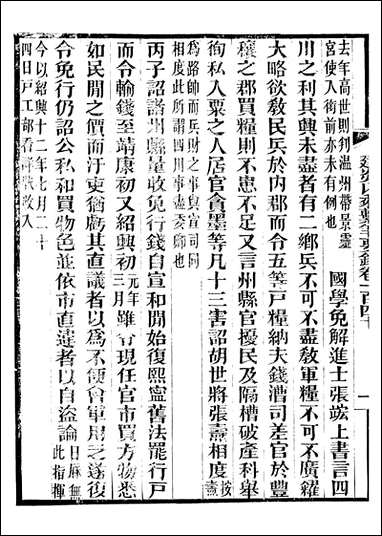 建炎以來繫年要錄卷一百四十
一
去年高世則判温州帶景靈
宮使入銜前亦未有例也
國學免解進士張上書言四
川之利其興未盡者有二鄉兵不可不盡敎軍糧不可不廣糴
大略欲敎民兵於內郡而令五等戶糧納夫錢漕司差官於豐
穰之郡買糧則不患不足又言州縣官擾民及隔槽破產科舉
徇私入粟之人居官貪墨等凡十三害詔胡世將張燾相度燾按
為路帥而兵財之事與宣司同
相度此所謂四川事盡委卿也
丙子詔諸州縣量收免行錢自宣和開始復熙寧舊法罷行戶
而令輸錢至靖康初又紹興初元年三月雖令現任官市買方物悉
如民閒之價而汙吏猶虧其直議者以為不便會軍用乏遂復
令免行仍詔公私和買物色並依市直違者以自盜論日厤無此指揮
今以紹興十二年七月二十
四日戶工部看詳狀修入